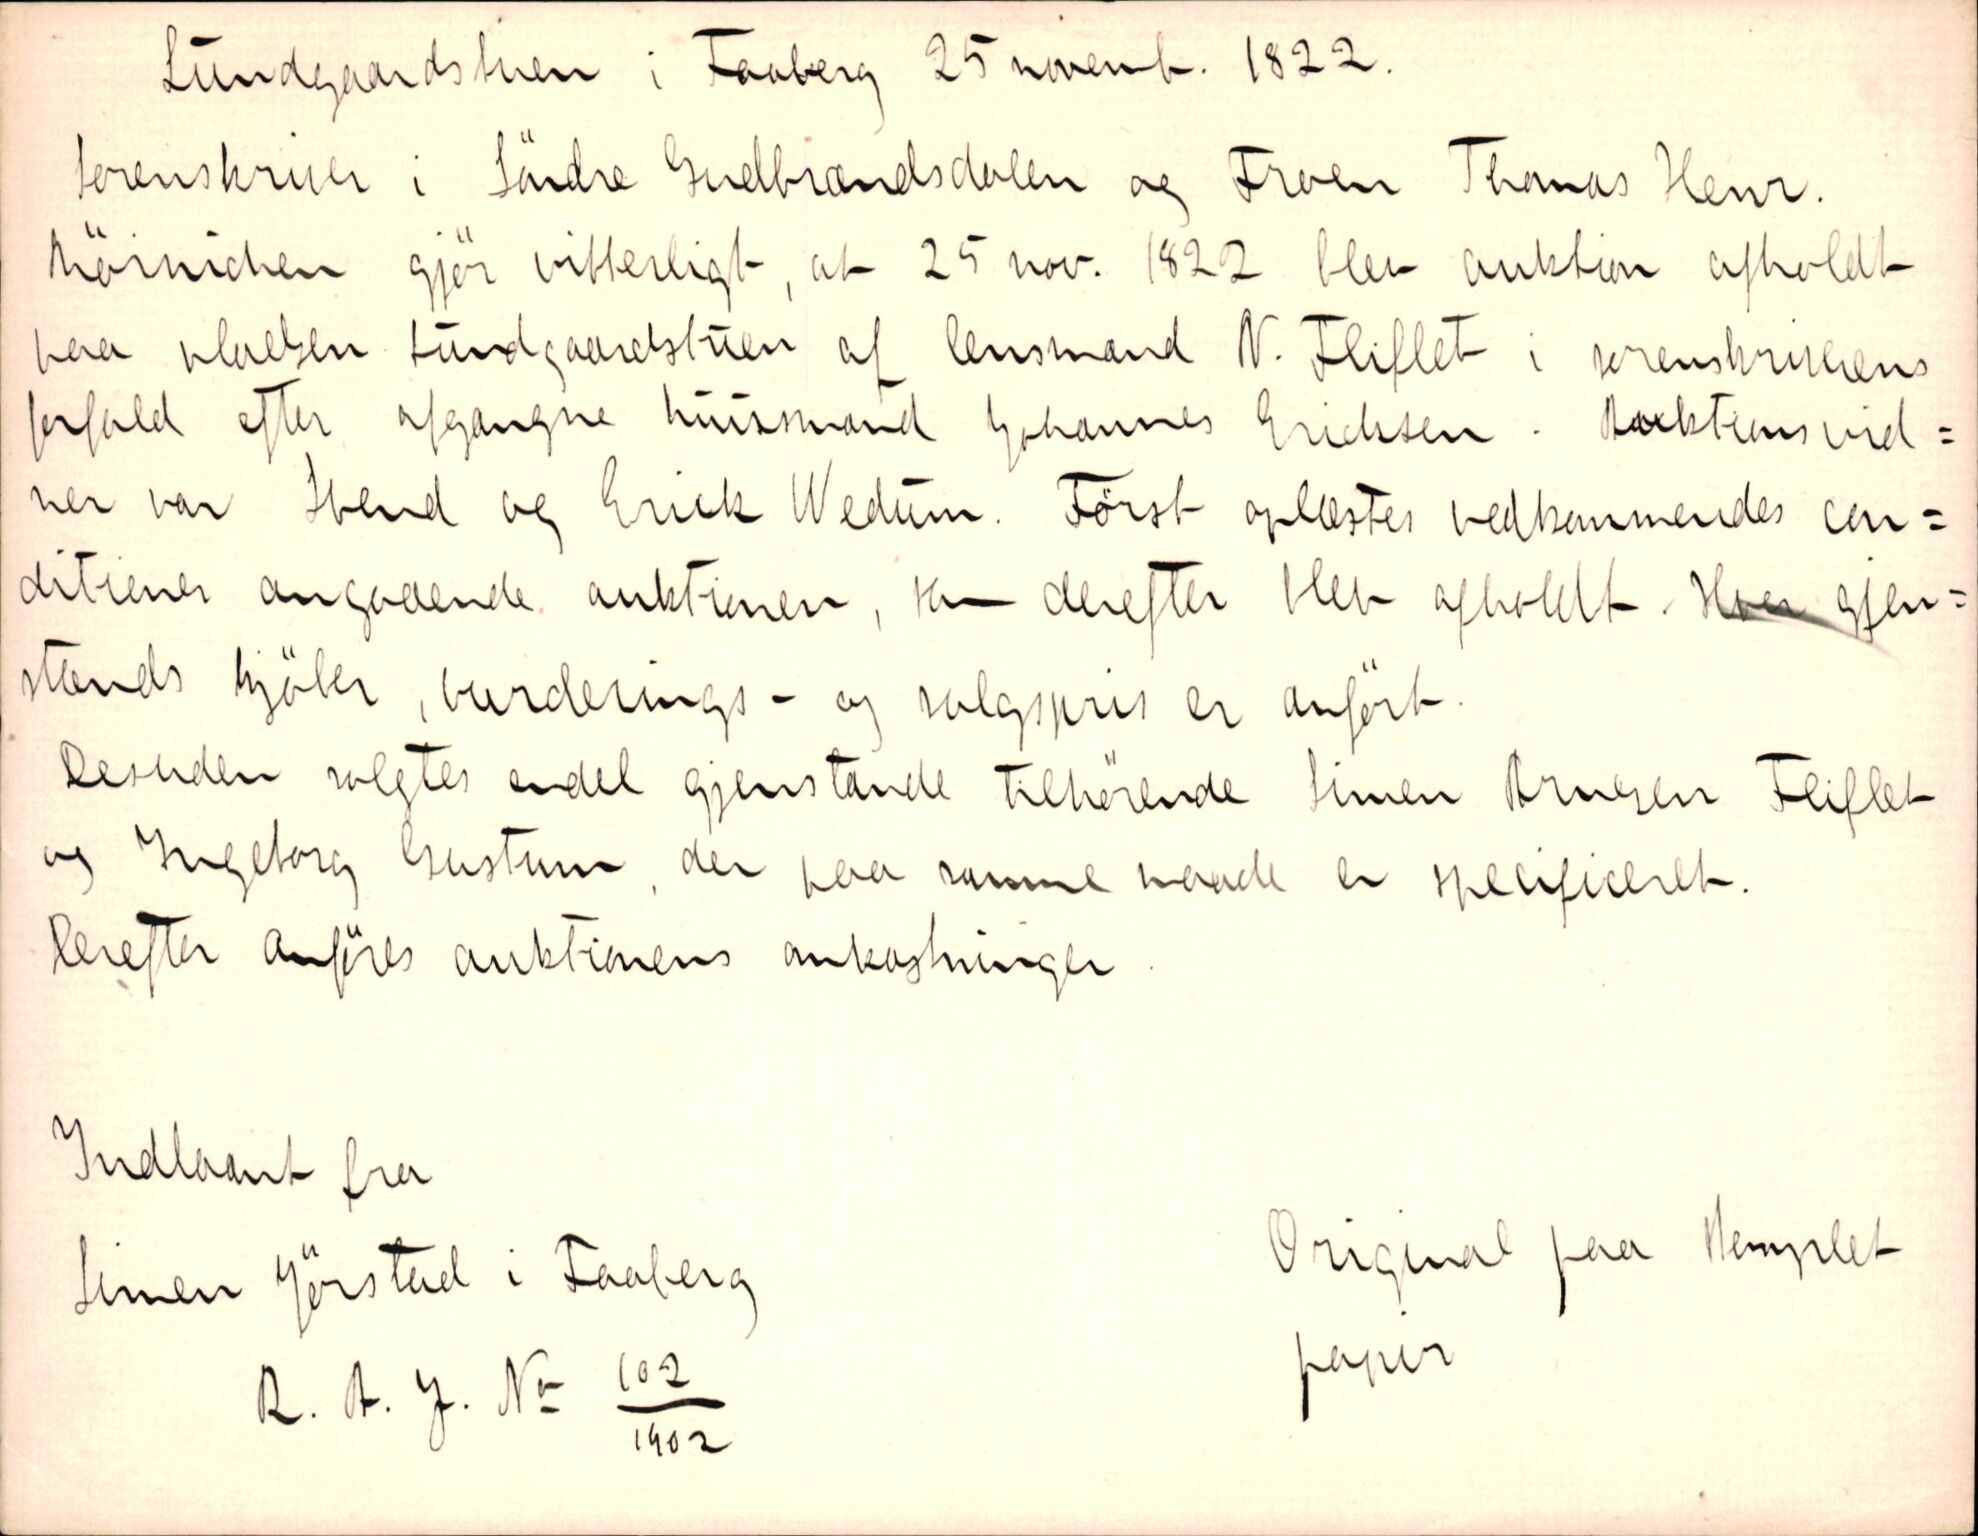 Lundgaardstuen i Faaberg 25 novemb. 1822.
Sorenskriver i Söndre Gudbrandsdalen og Froen Thomas Henr.
Mörnichen gjör vitterligt, at 25 nov. 1822 blev auktion afholdt
paa pladsen Lundgaardstuen af lensmand N. Fliflet i sorenskriverens
forfald efter afgangne huusmand Johannes Ericksen. Auktionsvid=
ner var Svend og Erick Wedum. Först oplæstes vedkommendes con=
ditioner angaaende auktionen, som derefter blev afholdt. Hver gjen=
stands kjöber, vurderings- og salgspris er anfört.
Desuden solgtes endel gjenstande tilhörende Simen Fliflet
og Ingeborg Gustum, der paa samme maade er specificeret.
Derefter anföres auktionens omkostninger.
Indlaant fra
Simen Jörstad i Faaberg
R. A. J. No 102/1902
Original paa stemplet
papir